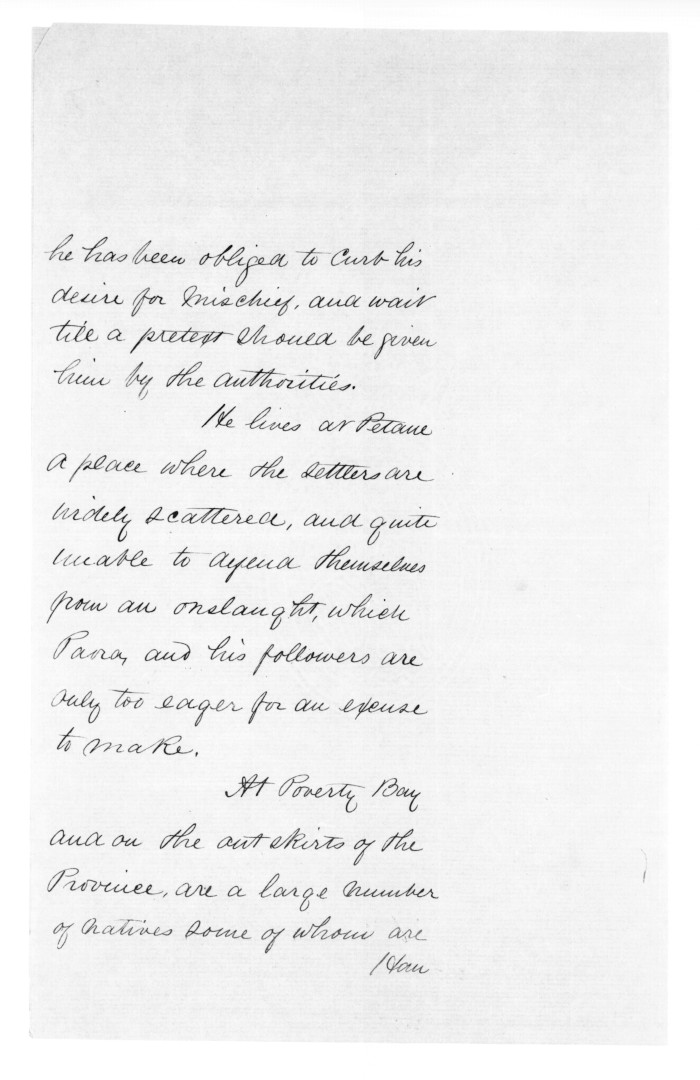 he has been obliged to curb his
desire for mischief, and wait
till a pretext should be given
him by the authorities.
He lives at Petane
a place where the settlers are
widely scattered, and quite
unable to defend themselves
from an onslaught, which
Paora, and his followers are
only too eager for an excuse
to make.
At Poverty Bay
and on the out skirts of the
Province, are a large number
of natives some of whom are
Hau